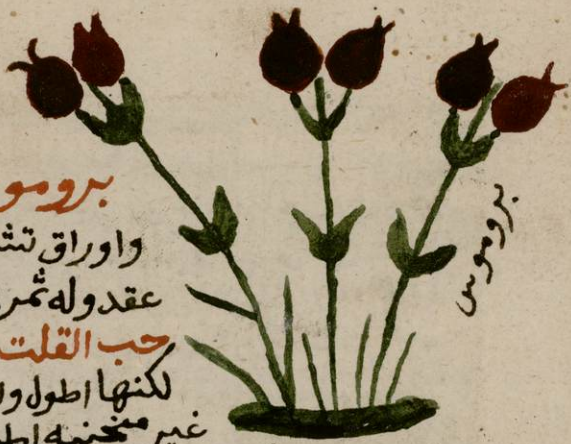 برومو
واوراق تشـ
عقد وله ثمر
حب القلت
لكنها اطول وا
غير منحنيه اطو
بروموس